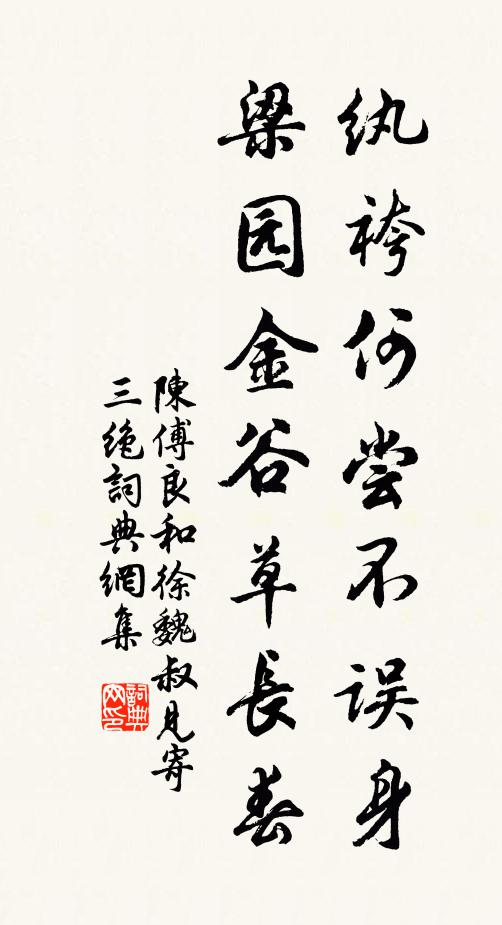 纨袴何尝不误身
梁园金谷草長春
陳傅良和徐魏叔見寄
三绝詞典網集
詞典网印